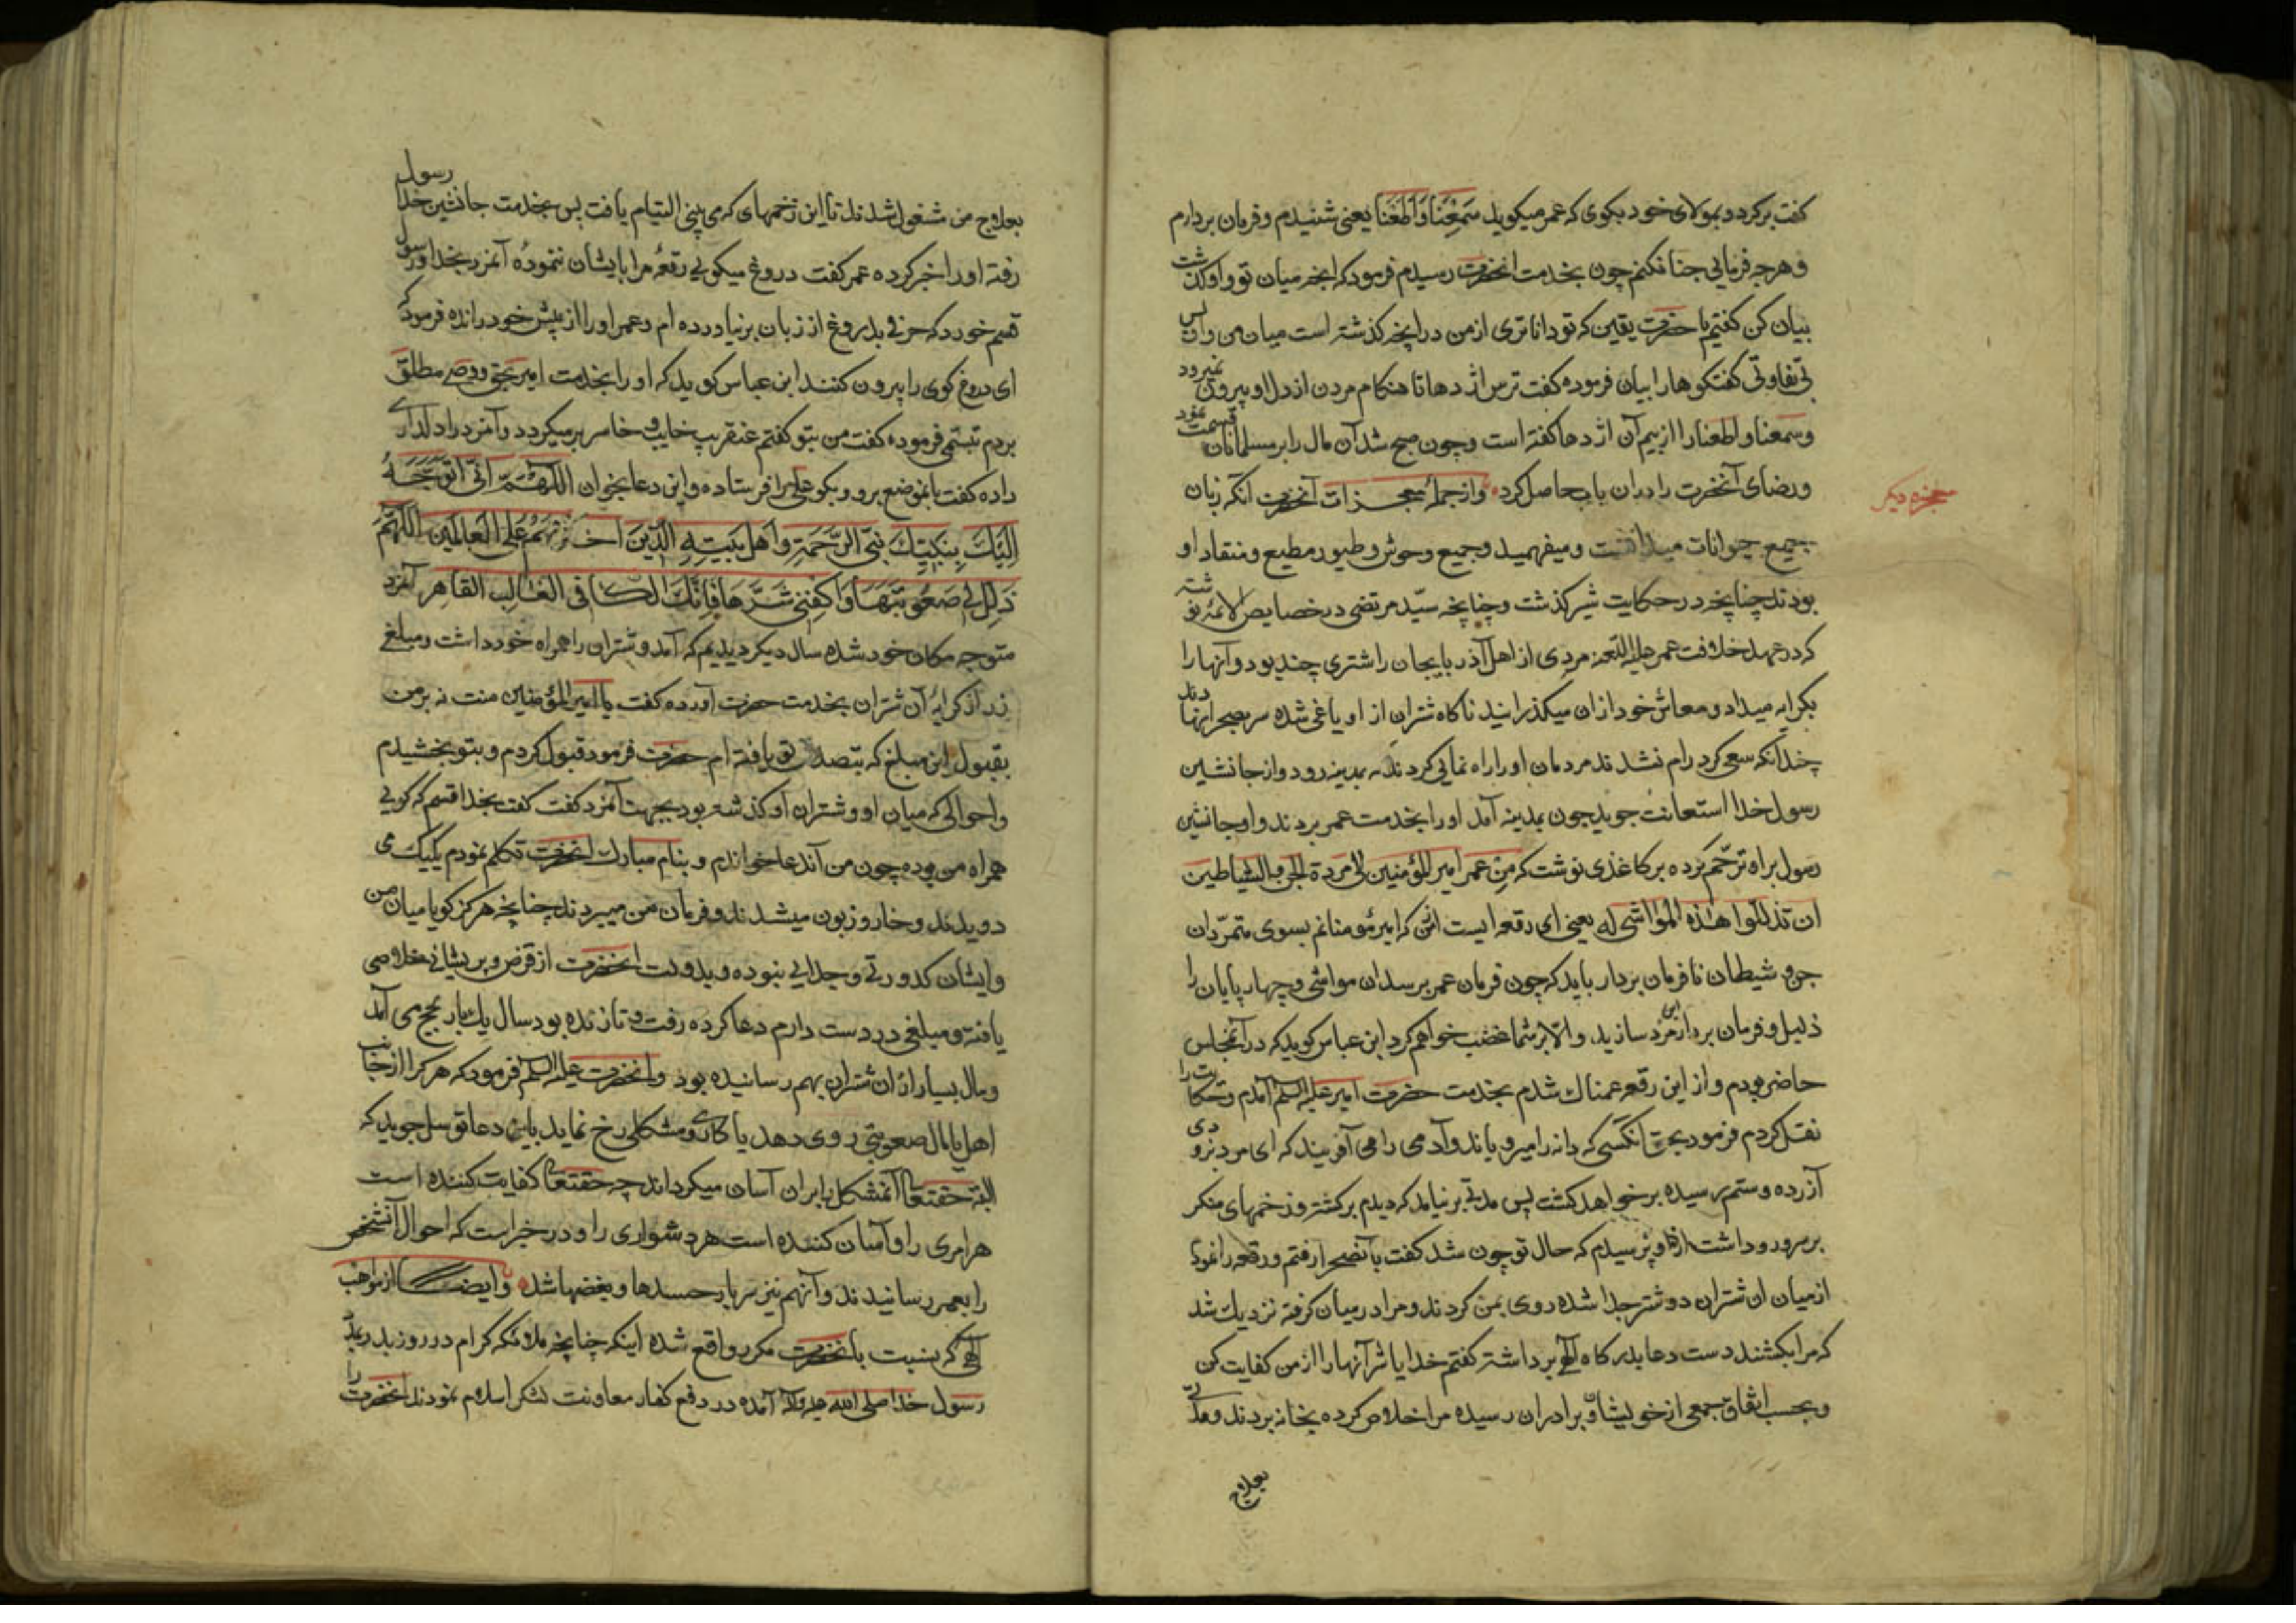 کفت برکرد و بمولای خود بکوی که عمر میکوید سَمِعْنَا وَاَطَعْنَا یعنی شنیدم و فرمان بردارم
و هرچه فرمایی چنان کنم چون بخدمت انحضرت رسیدم فرمود که انچه میان تو و او کذشت
بیان کن کفتم یا حضرت یقین که تو داناتری از من در انچه کذشته است میان من و او پس
بی تفاوتی کفتکوها را بیان فرموده کفت ترس اژدها تا هنکام مردن از دل او بیرون نمیرود
و سمعنا و اطعنا را از بیم آن اژدها کفته است و چون صبح شد آن مال را بر مسلمانان قسمت نمود
و رضای آنحضرت را در ان باب حاصل کرد و از جمله معجزات آنحضرت آنکه زبان
معجزه دیکر
جمیع حیوانات میدانست و میفهمید و جمیع وحوش و طیور مطیع و منقاد او
بودند چنانچه در حکایت شیر کذشت و چنانچه سیّد مرتضی در خصایص الائمه نوشته
که در عهد خلافت عمر علیه اللعنه مردی از اهل آذربایجان را شتری چند بود و آنها را
بکرایه میداد و معاش خود از ان میکذرانید ناکاه شتران از او یاغی شده سر بصحرا نهادند
چندانکه سعی کرد رام نشدند مردمان او را راه نمایی کردند که بمدینه رود و از جانشین
رسول خدا استعانت جوید چون بمدینه آمد او را بخدمت عمر بردند و او جانشین
رسول بر او ترحّم کرده بر کاغذی نوشت که مِن عمر امیر المؤمنین الی مَردة الجن والشیاطین
ان تذللوا هذه المواشی له یعنی ای رقعه ایست از من که امیر مؤمنانم بسوی متمرّدان
جن و شیطان نافرمان بردار باید که چون فرمان عمر برسد ان مواشی و چهارپایان را
ذلیل و فرمان بردار این مرد سازید و الّا بر شما غضب خواهم کرد ابن عباس کوید که در آن مجلس
حاضر بودم و از این رقعه غمناک شدم بخدمت حضرت امیر علیه السلم آمدم و حکایت را
نقل کردم فرمود بحق آنکسی که دانه را میرویاند و آدمی را می آفریند که ای مرد بزودی
آزرده و ستم رسیده برخواهد کشت پس مدتی برنیامد که دیدم برکشته و زخمهای منکر
بر سر و رو داشت از او پرسیدم که حال تو چون شد کفت بآنصحرا رفتم و رقعه را نمودم
از میان ان شتران دو شتر جدا شده روی بمن کردند و مرا در میان کرفته نزدیک شد
که مرا بکشند دست دعا بدرکاه الهی برداشته کفتم خدایا شر آنها را از من کفایت کن
و بحسب اتفاق جمعی از خویشان و برادران رسیده مرا خلاص کرده بخانه بردند و مدتی
بعلاج
بعلاج من مشغول شدند تا این زخمهای که می بینی التیام یافت پس بخدمت جانشین رسول خدا
رفته او را خبر کرده عمر کفت دروغ میکویی رقعهٔ مرا بایشان ننمودهٔ آنمرد بخدا و رسول
قسم خورد که حرفی بدروغ از زبان برنیاورده ام و عمر او را از پیش خود رانده فرمود که
ای دروغ کوی را بیرون کنند ابن عباس کوید که او را بخدمت امیر بحق و وصی مطلق
بردم تبسّمی فرموده کفت من بتو کفتم عنقریب خایب و خاسر برمیکردد و آنمرد را دلداری
داده کفت بانموضع برو و بکو علی مرا فرستاده و این دعا بخوان اللّهُمَّ اِنّی اَتَوَجَّهُ
اِلَیْکَ بِنَبِیِّکَ نَبِیِّ الرَّحْمَةِ وَاَهْلِ بَیْتِهِ الَّذینَ اخْتَرْتَهُمْ عَلَی الْعالَمینَ اللّهُمَّ
ذَلِّلْ لی صُعُوبَتَهَا وَاکْفِنی شَرَّهَا فَاِنَّکَ الْکافی الغالِب القاهِر آنمرد
متوجه مکان خود شده سال دیکر دیدیم که آمد و شتران را همراه خود داشت و مبلغ
زر از کرایهٔ آن شتران بخدمت حضرت آورده کفت یا امیر المؤمنین منت نه بر من
بقبول این مبلغ که بتصدق تو یافته ام حضرت فرمود قبول کردم و بتو بخشیدم
و احوالی که میان او و شتران او کذشته بود بجهت آنمرد کفت کفت بخدا قسم که کویی
همراه من بوده چون من آندعا خواندم و بنام مبارک انحضرت تکلم نمودم یکیک می
دویدند و خار و زبون میشدند و فرمان من میبردند چنانچه هرکز کویا میان من
و ایشان کدورتی و جدایی نبوده و بدولت انحضرت از قرض و پریشانی خلاصی
یافته و مبلغی در دست دارم دعا کرده رفت و تا زنده بود سال یک بار بحج می آمد
و مال بسیار از ان شتران بهم رسانیده بود و انحضرت علیه السلم فرمود که هر کرا از جانب
اهل یا مال صعوبتی روی دهد یا کاری و مشکلی رخ نماید باین دعا توسل جوید که
البته حقتعا آنمشکل را بر ان آسان میکرداند چه حقتعا کفایت کننده است
هر امری را و آسان کننده است هر دشواری را و در خبر است که احوال آنشخص
را بعمر رسانیدند و آنهم نیز سربار حسدها و بغضها شد و ایضا از مواهب
الهی که بنسبت بانحضرت مکرر واقع شده اینکه چنانچه ملائکه کرام در روز بدر بمدد
رسول خدا صلی الله علیه و آله آمده در دفع کفار معاونت لشکر اسلام نمودند انحضرت را